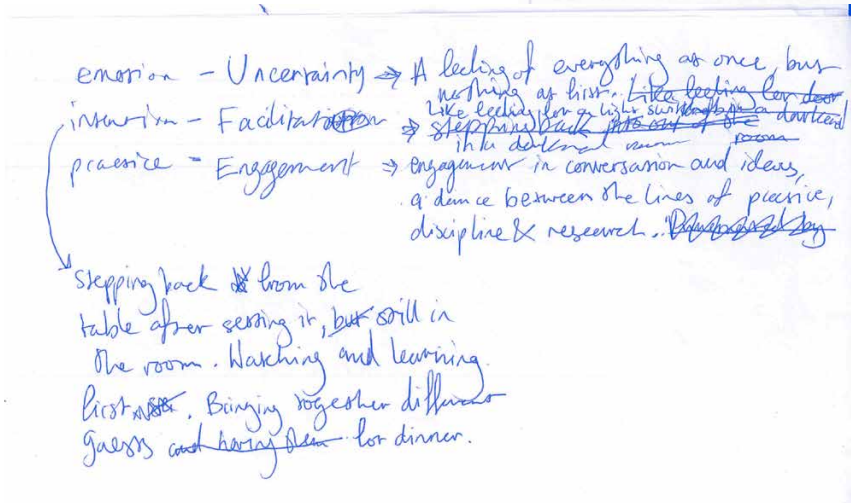 emotion - Uncertainty → A feeling of everything at once, but
nothing at first. Like feeling for door
Like feeling for a light switch in a darkened
intention - Facilitation → stepping back into out of the room
in a darkened room
practice - Engagement ⇒ engagement in conversation and ideas,
a dance between the lines of practice,
discipline & research.
stepping back from the
table after setting it, but still in
the room. Watching and learning
first. Bringing together different
guests and having them for dinner.